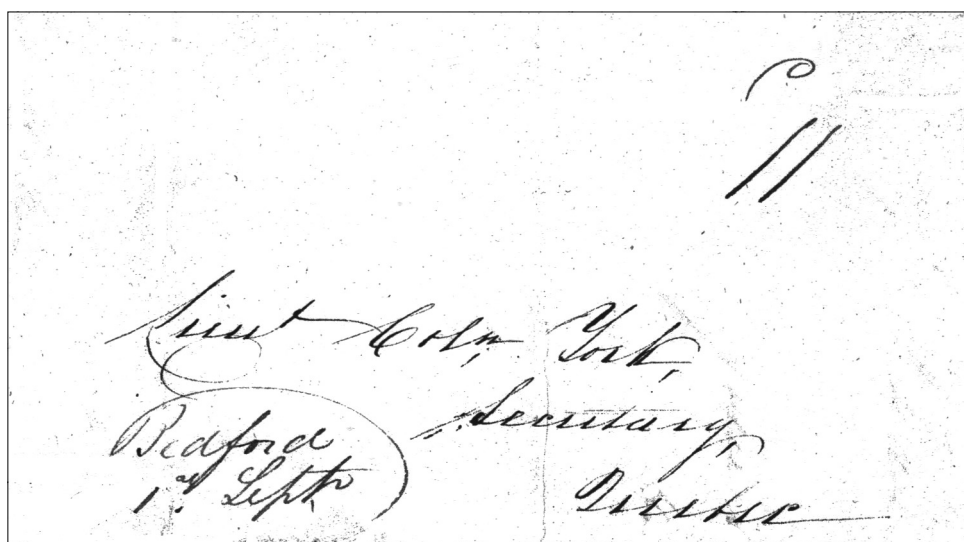 11
Lieut Coln, York,
Secretary,
Quebec
Bedford
1st Septr